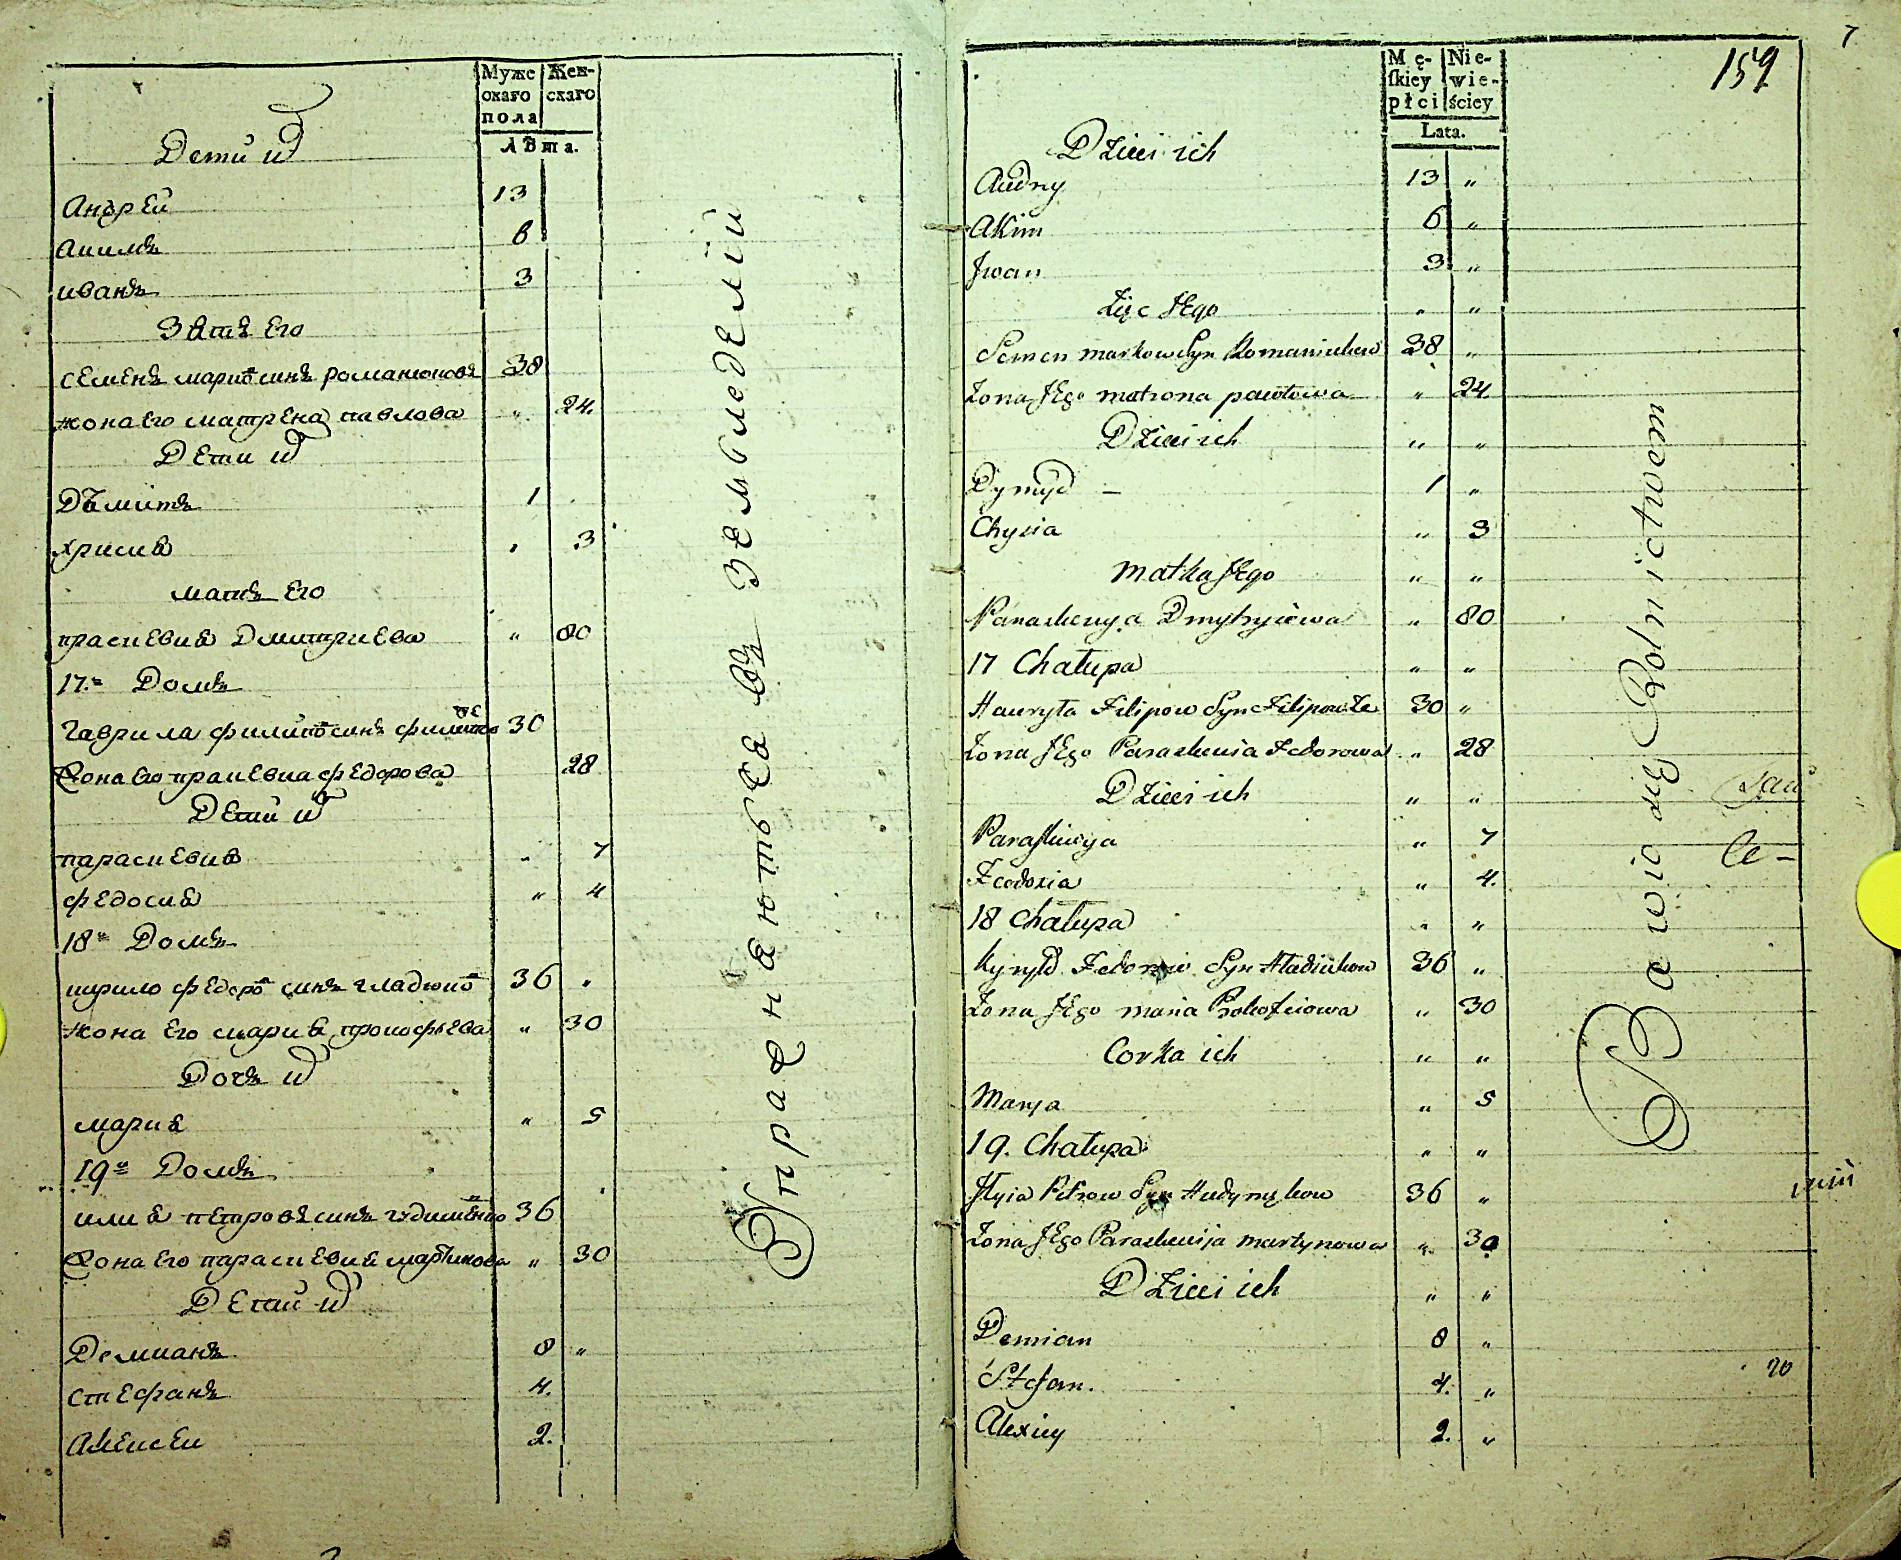 Муже скаго пола
Жен- скаго
Лѣта.
Дети их
Андрей 13
Акимъ 6
иванъ 3
Зять Его
сЕмЕнъ марковъ синъ романюковъ 38
жона Его матрЕна павлова " 24.
ДЕти их
Дѣмитъ 1
хрисия " 3
мать Его
прасковия Дмитриева " 80
17.ъ Домъ
гаврила филиповъ синъ 30
Жона Его праскевиа федорова 28
ДЕти их
параскЕвия " 7
фЕдосия " 4
18ъ Домъ
кирило фЕдоровъ синъ гладюковъ 36 "
жона Его мария прокофьева " 30
Дочъ их
мария " 5
19ъ Домъ
илия пЕтровъ синъ 36
Жона Его параскЕвия мартинова " 30
ДЕти их
Демианъ 8 "
стЕфанъ 4.
АлЕксЕи 2.
Упражняются въ Земледелии
7
159
Mę- skiey płci
Nie- wie- ściey
Lata.
Dzieci ich
Andry 13 "
Akim 6 "
Jwan 3 "
Zięc JEgo " "
Semen markow Syn Romaniukow 38 "
Zona JEgo matrona pawłowa " 24
Dzieci ich " "
Dymyd — 1 "
Chysia " 3
matka JEgo " "
Paraskewya Dmytryiewa " 80
17 Chałupa " "
Hauryła Filipow Syn 30 "
Zona JEgo Paraskewia Fedorowa " 28
Dzieci ich " "
Paraskiewya " 7
Feodozia " 4.
18 Chałupa " "
Kyryło Fedorow Syn Hladiukow 36 "
Zona JEgo maria Prokofiowa " 30
Corka ich " "
Marya " 5
19. Chałupa " "
Jłyia Petrow Syn 36 "
Zona JEgo Paraskewija martynowa " 30
Dzieci ich " "
Demian 8 "
Stefan. 4. "
Alexiey 2. "
Bawią się Rolnictwem